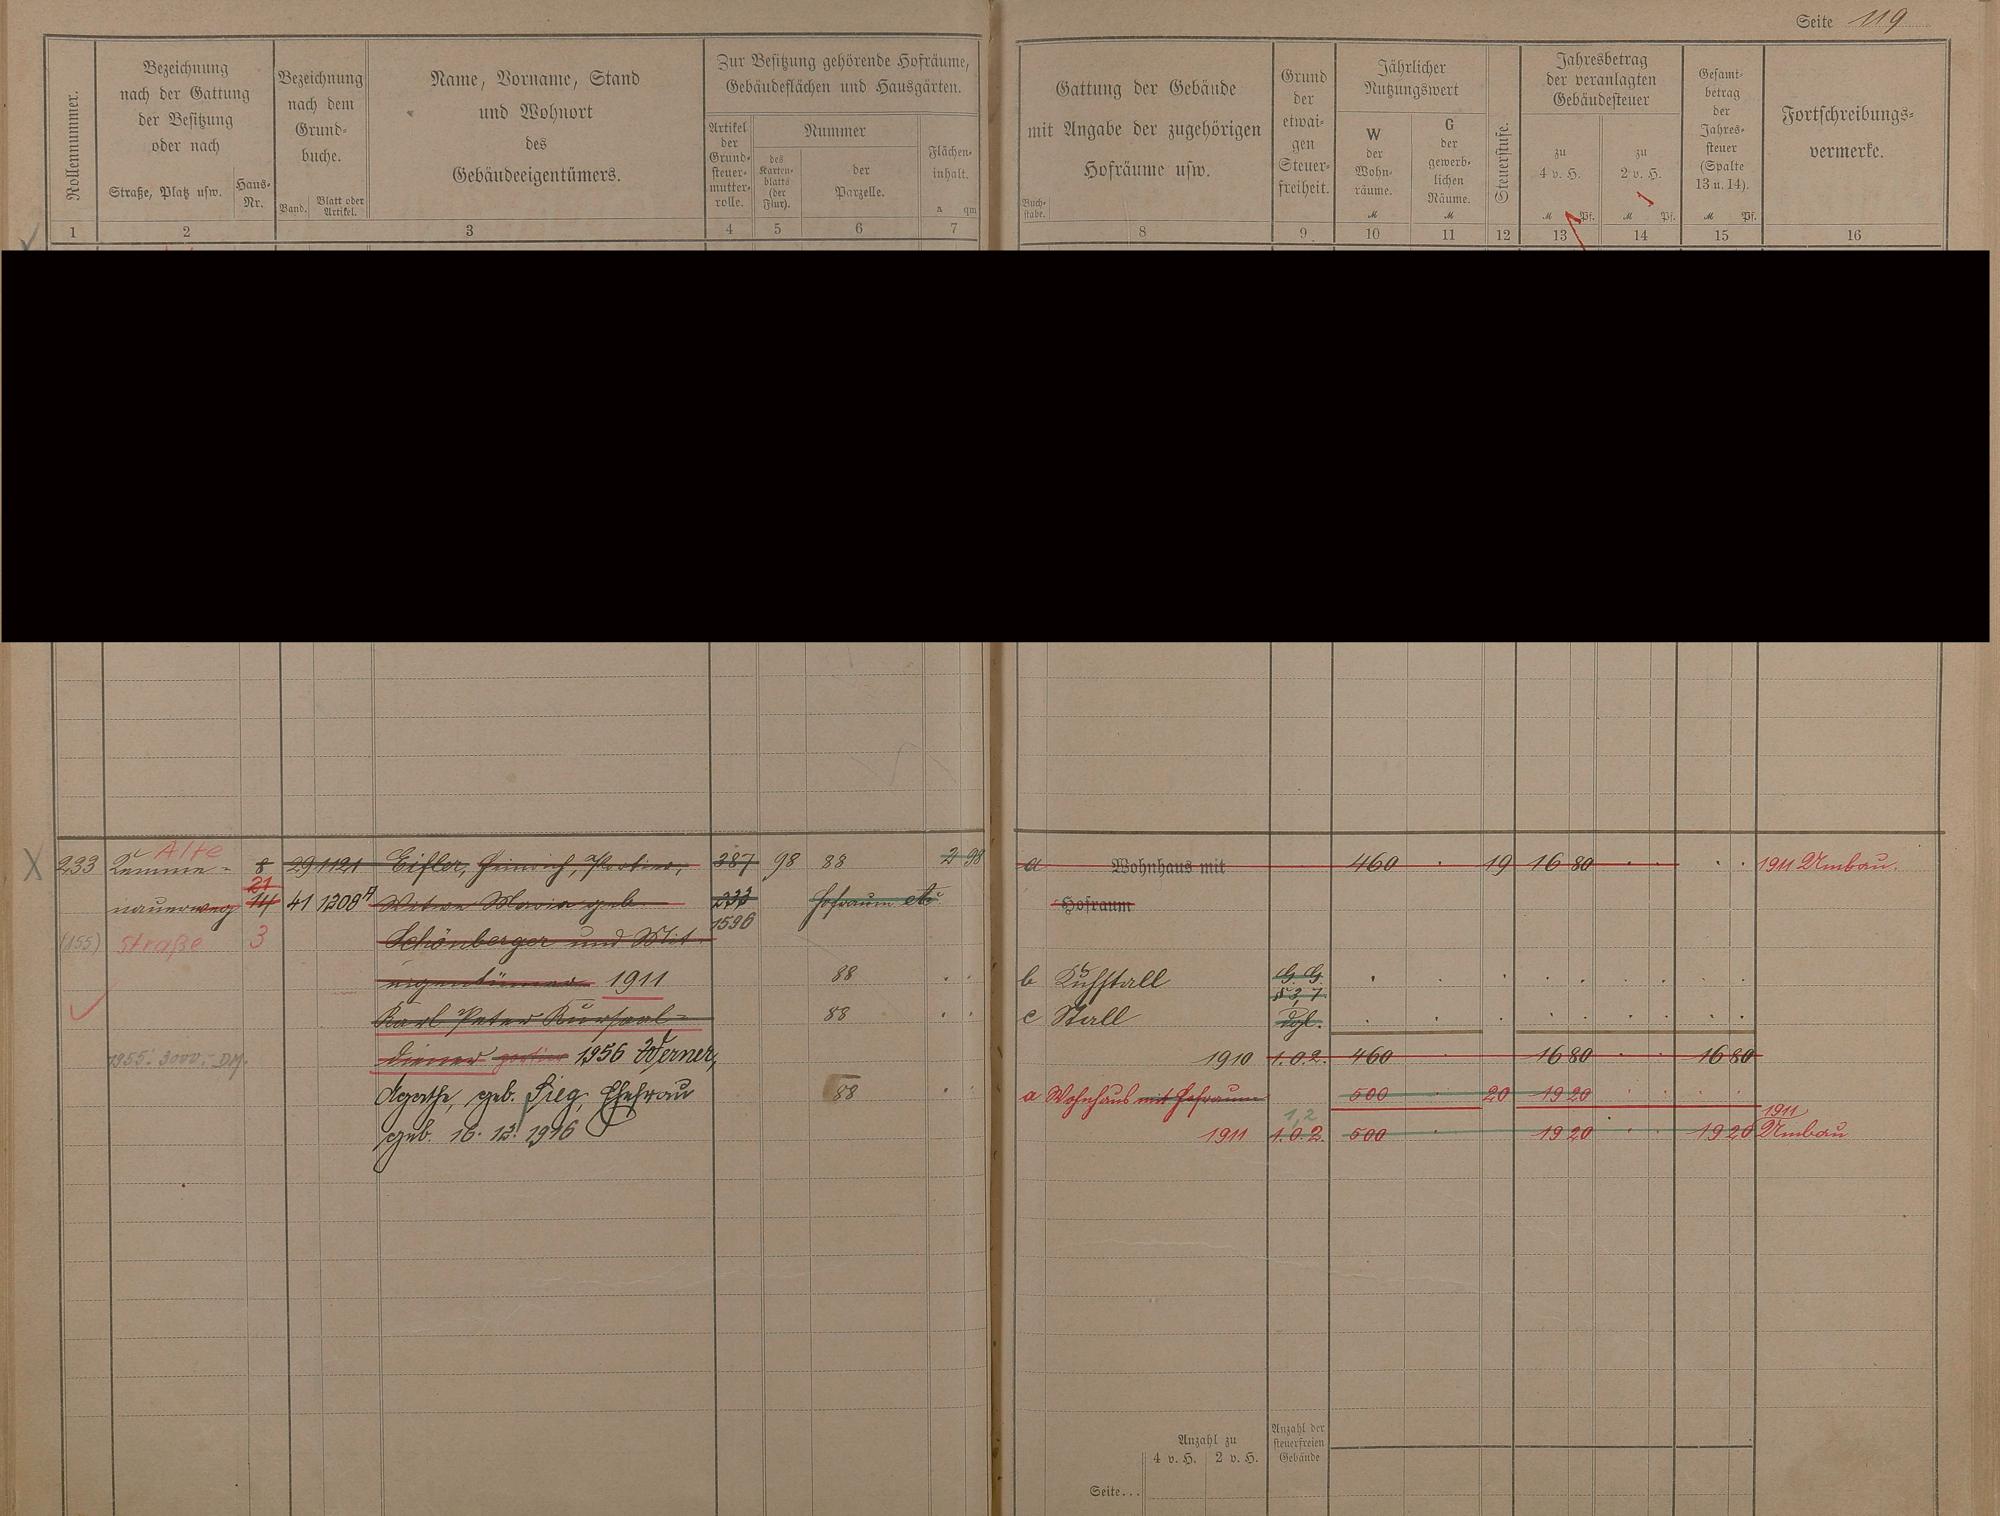 Seite 119
Rollennummer.
Bezeichnung
nach der Gattung
der Besitzung
oder nach
Straße, Platz usw.
Haus-
Nr.
Bezeichnung
nach dem
Grund-
buche.
Band.
Blatt oder
Artikel.
Name, Vorname, Stand
und Wohnort
des
Gebäudeeigentümers.
Zur Besitzung gehörende Hofräume,
Gebäudeflächen und Hausgärten.
Artikel
der
Grund-
steuer-
mutter-
rolle.
Nummer
des
Karten-
blatts
(der
Flur).
der
Parzelle.
Flächen-
inhalt.
a qm
Gattung der Gebäude
mit Angabe der zugehörigen
Hofräume usw.
Buch-
stabe.
Grund
der
etwai-
gen
Steuer-
freiheit.
Jährlicher
Nutzungswert
W
der
Wohn-
räume.
M
G
der
gewerb-
lichen
Räume.
M
Steuerstufe.
Jahresbetrag
der veranlagten
Gebäudesteuer
zu
4 v. H.
M Pf.
zu
2 v. H.
M Pf.
Gesamt-
betrag
der
Jahres-
steuer
(Spalte
13 u. 14).
M Pf.
Fortschreibungs-
vermerke.
1 2 3 4 5 6 7 8 9. 10 11 12 13 14 15 16
Alte
233 Kemme- 8 29 1121 Eisler, Heinrich, Portier, 387 98 88 2 98 a Wohnhaus mit 460 19 16 80 1911 Umbau.
21
nauerweg 14 41 1208A Witwe Maria geb. 233 Hofraum etc Hofraum
1596
(155) Straße 3 Schönberger und Mit-
eigentümer 1911 88 b Kuhstall G. G.
§ 3, 7
Karl Peter Kursaal- 88 c Stall dgl.
1955: 3000.- DM. diener portier 1956 Werner, 1910 1.0.2. 460 16 80 16 80
Agathe, geb. Sieg, Ehefrau 88 a Wohnhaus mit Hofraum 500 20 19 20
1,2 1911
geb. 16. 12. 1916 1911 1.0.2. 500 19 20 19 20 Umbau
Anzahl zu
4 v. H. 2 v. H.
Anzahl der
steuerfreien
Gebäude
Seite...